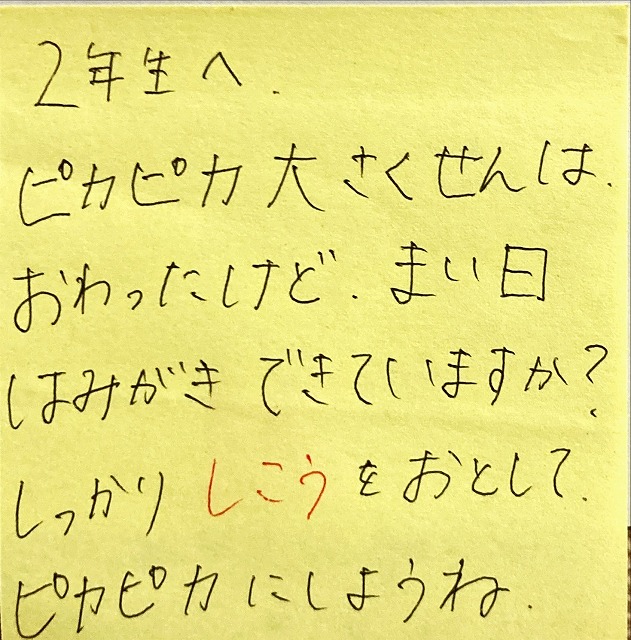 2年生へ.
ピカピカ大さくせんは.
おわったけど.まい日
はみがきできていますか?
しっかりしこうをおとして.
ピカピカにしようね.